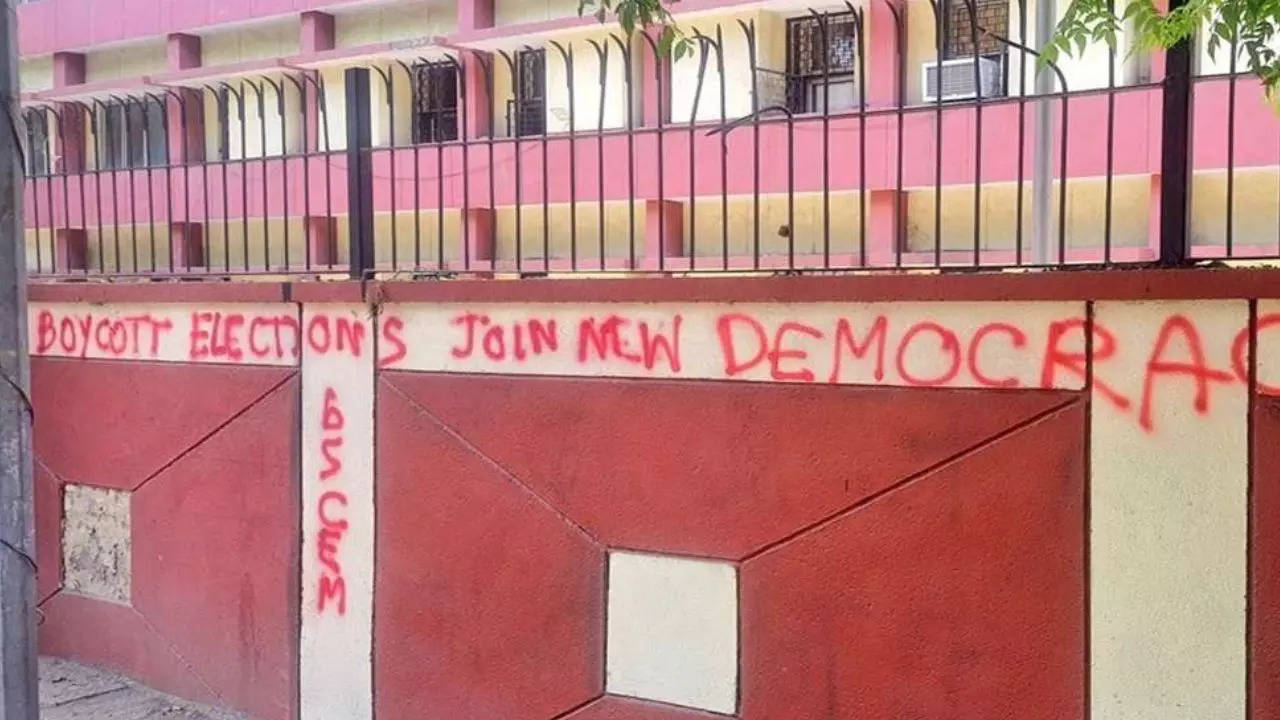 BOYCOTT ELECTIONS JOIN NEW DEMOCRAC
BSCEM